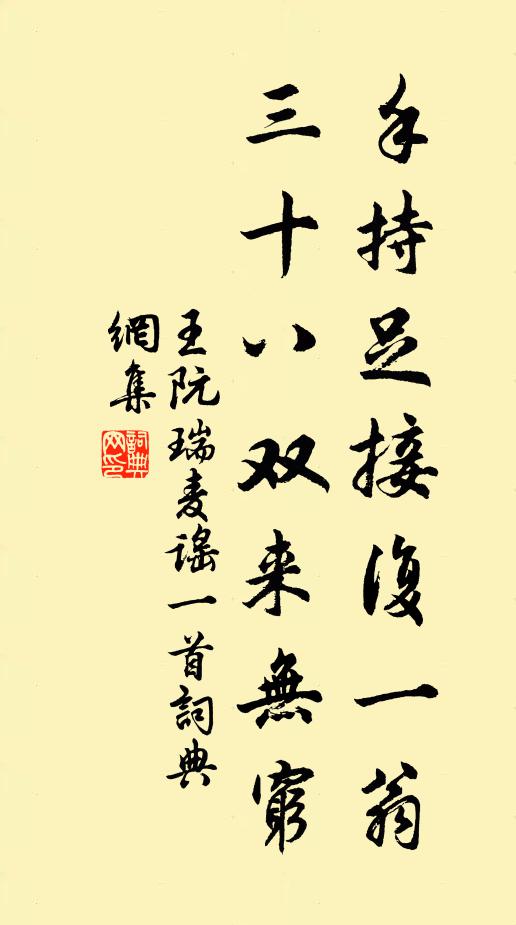 手持足接復一翁
三十八双来無窮
王阮瑞麦谣一首詞典
網集
詞典
网印